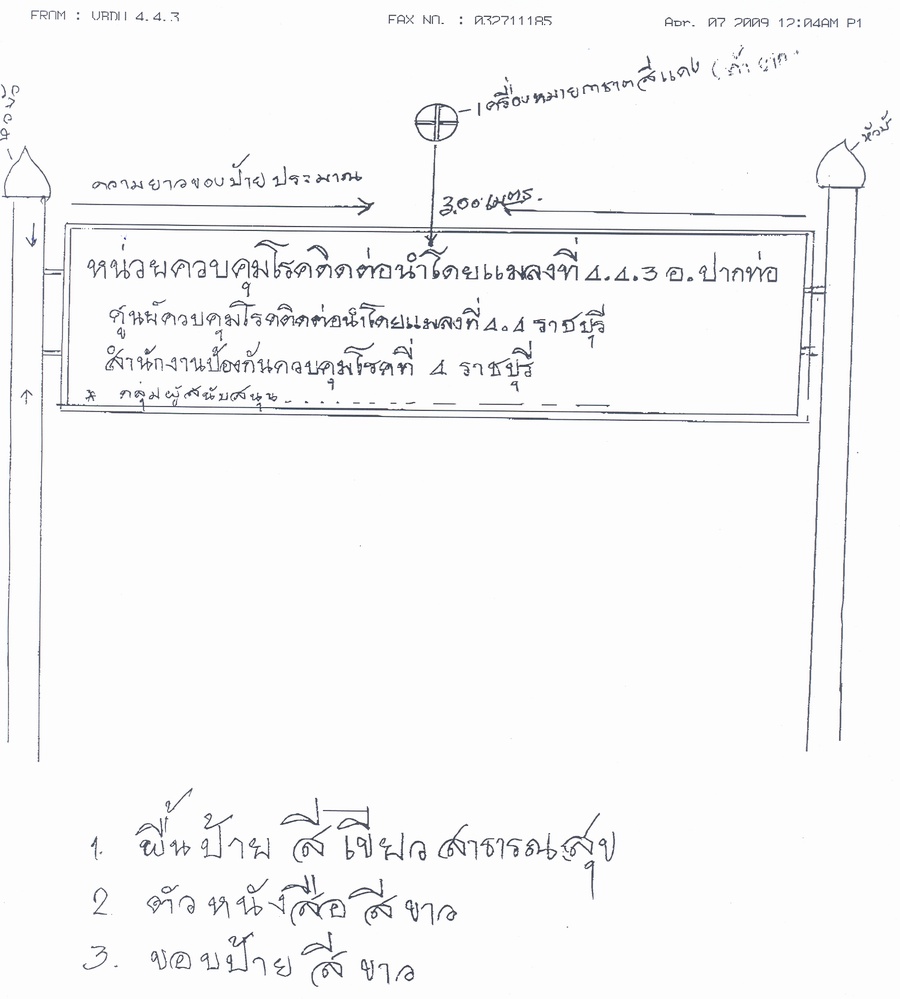 FROM : VBDU 4.4.3 FAX NO. : 032711185 Apr. 07 2009 12:04AM P1
เครื่องหมายกาชาดสีแดง (
หัวบัว
ความยาวของป้าย ประมาณ 3.00 เมตร.
หน่วยควบคุมโรคติดต่อนำโดยแมลงที่ 4.4.3 อ.ปากท่อ
ศูนย์ควบคุมโรคติดต่อนำโดยแมลงที่ 4.4 ราชบุรี
สำนักงานป้องกันควบคุมโรคที่ 4 ราชบุรี
* กลุ่มผู้สนับสนุน
1. พื้นป้าย สีเขียวสาธารณะสุข
2. ตัวหนังสือ สีขาว
3. ขอบป้าย สีขาว